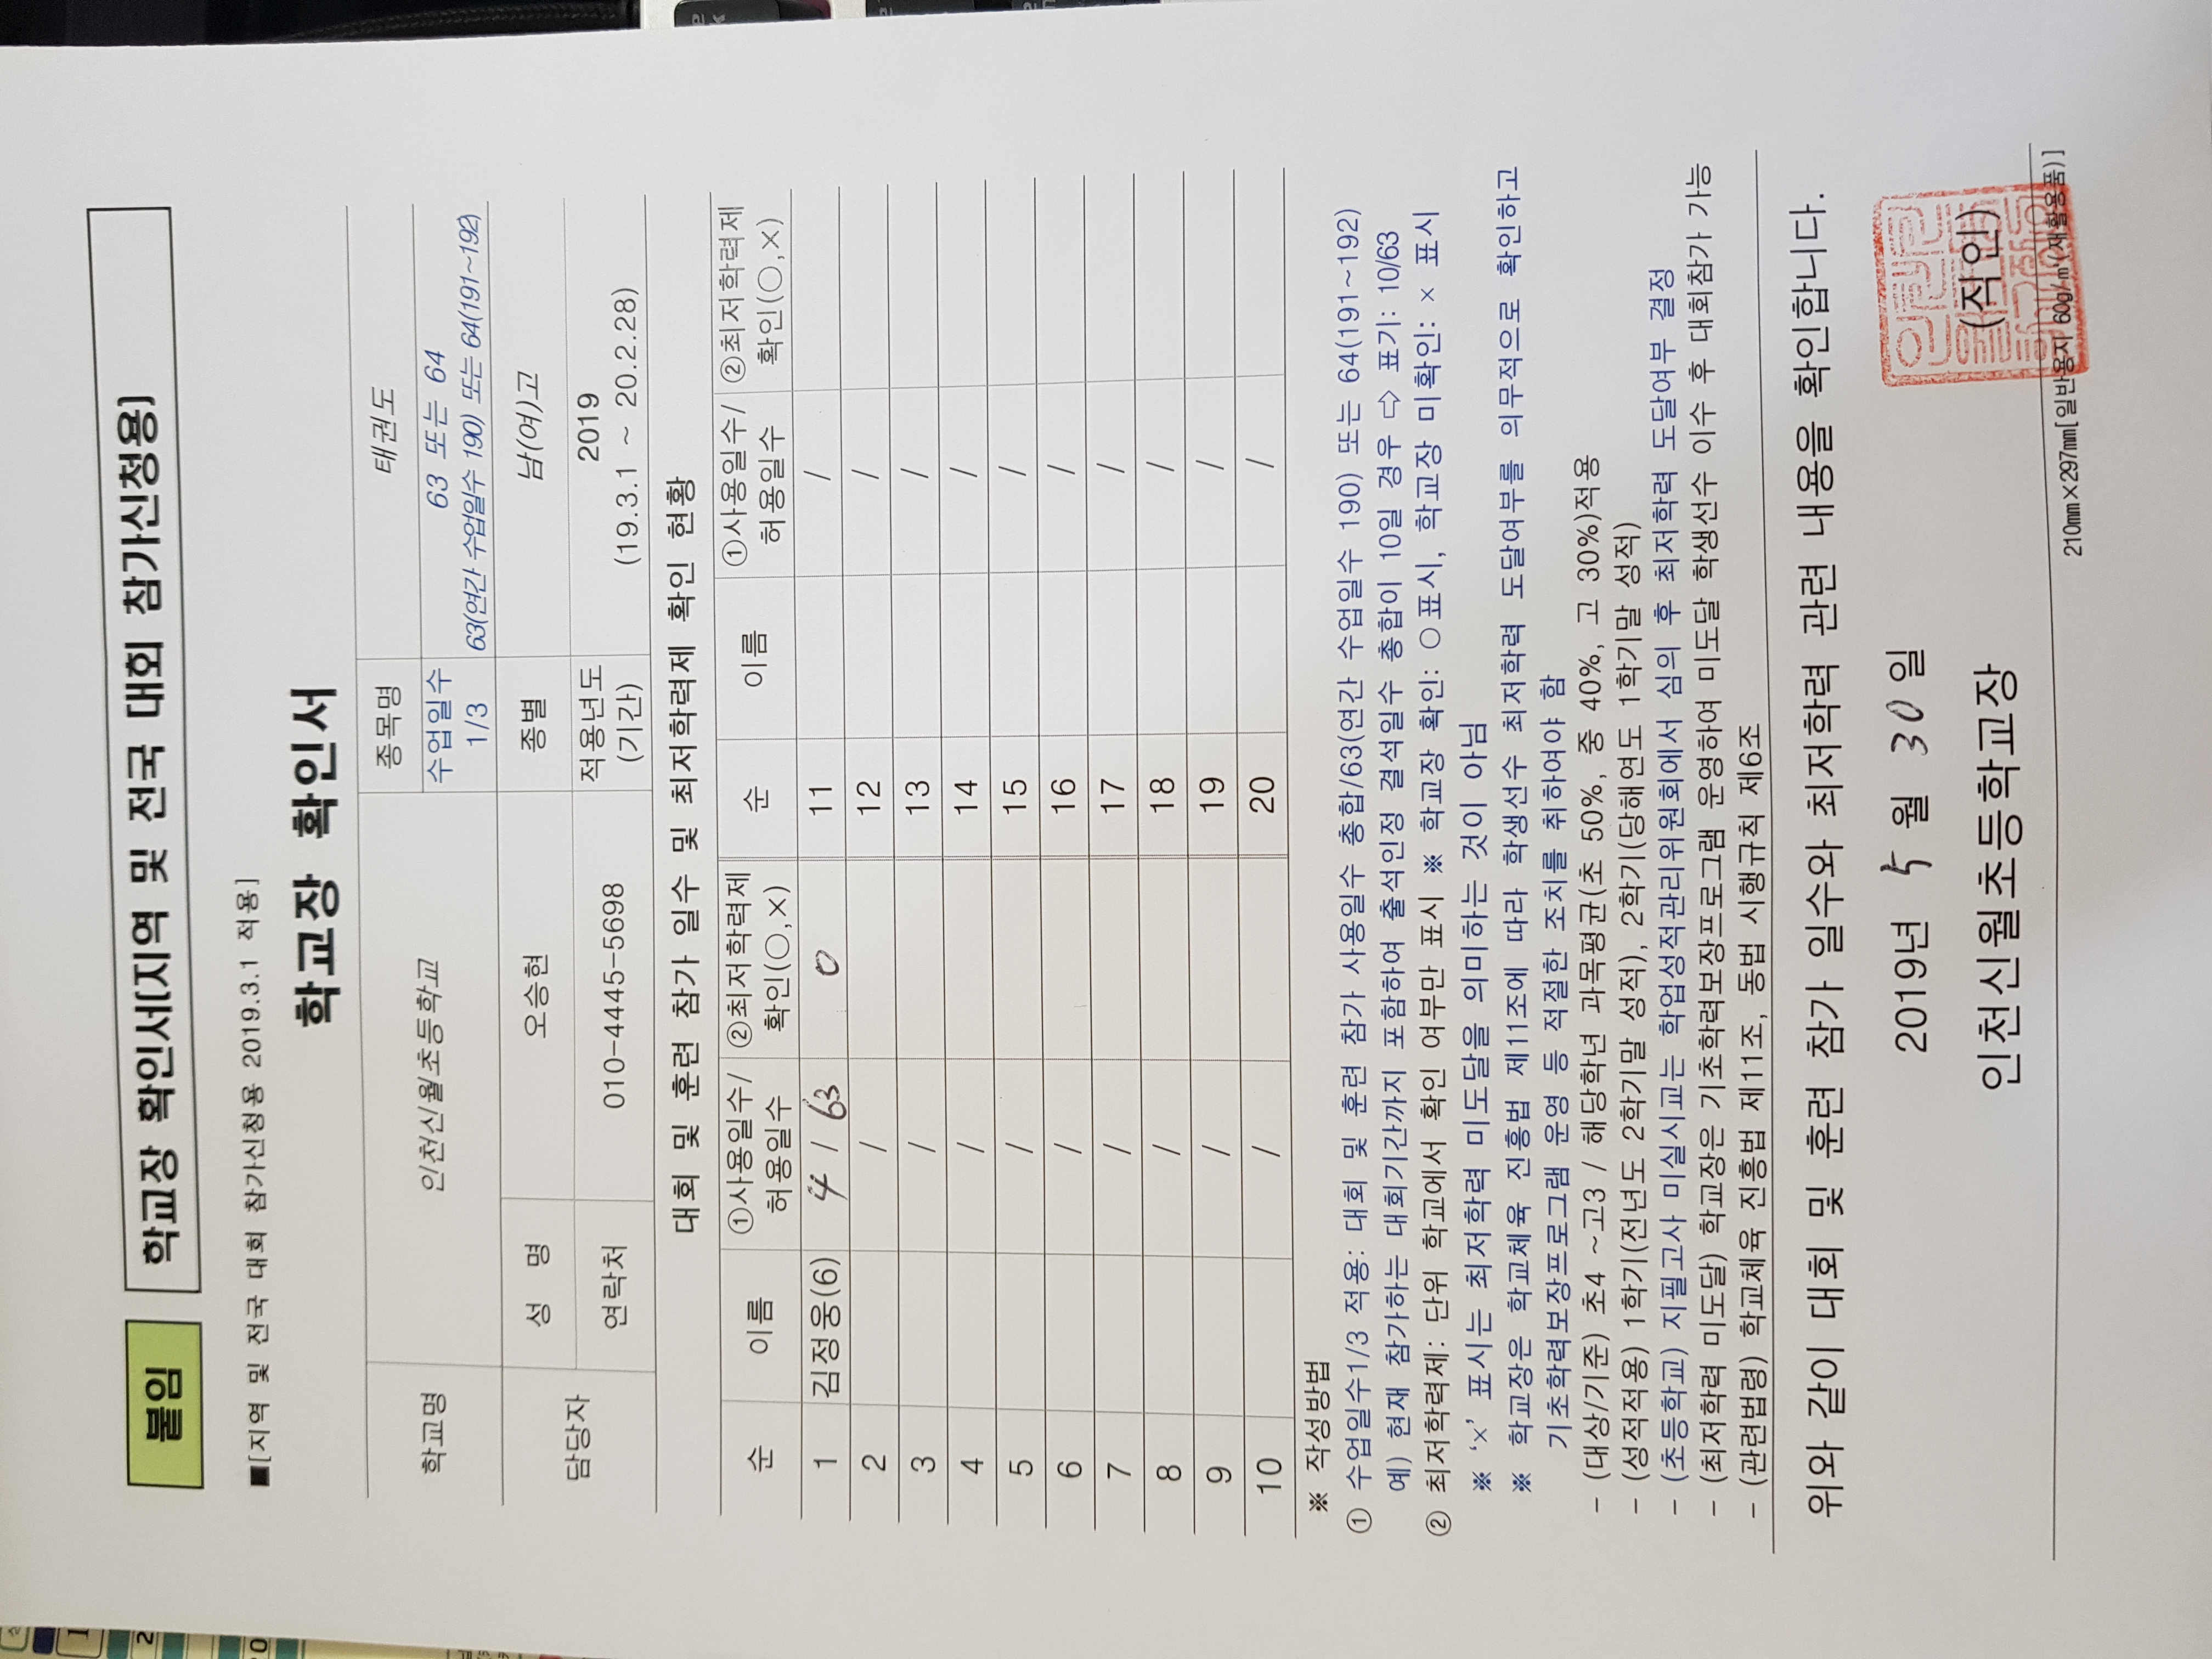 붙임
학교장 확인서(지역 및 전국 대회 참가신청용)
■[지역 및 전국 대회 참가신청용 2019.3.1 적용]
학교장 확인서
학교명 인천신월초등학교 종목명 태권도
수업일수 1/3 63 또는 64
63(연간 수업일수 190) 또는 64(191~192)
담당자 성 명 오승현 종별 남(여)고
연락처 010-4445-5698 적용년도 (기간) 2019
(19.3.1 ~ 20.2.28)
대회 및 훈련 참가 일수 및 최저학력제 확인 현황
순 이름 ①사용일수/허용일수 ②최저학력제 확인(○,×) 순 이름 ①사용일수/허용일수 ②최저학력제 확인(○,×)
1 김정웅(6) 4 / 63 0 11 /
2 / 12 /
3 / 13 /
4 / 14 /
5 / 15 /
6 / 16 /
7 / 17 /
8 / 18 /
9 / 19 /
10 / 20 /
※ 작성방법
① 수업일수1/3 적용: 대회 및 훈련 참가 사용일수 총합/63(연간 수업일수 190) 또는 64(191~192)
예) 현재 참가하는 대회기간까지 포함하여 출석인정 결석일수 총합이 10일 경우 ⇨ 표기: 10/63
② 최저학력제: 단위 학교에서 확인 여부만 표시 ※ 학교장 확인: ○표시, 학교장 미확인: × 표시
※ ‘×’ 표시는 최저학력 미도달을 의미하는 것이 아님
※ 학교장은 학교체육 진흥법 제11조에 따라 학생선수 최저학력 도달여부를 의무적으로 확인하고
기초학력보장프로그램 운영 등 적절한 조치를 취하여야 함
- (대상/기준) 초4 ~고3 / 해당학년 과목평균(초 50%, 중 40%, 고 30%)적용
- (성적적용) 1학기(전년도 2학기말 성적), 2학기(당해연도 1학기말 성적)
- (초등학교) 지필고사 미실시교는 학업성적관리위원회에서 심의 후 최저학력 도달여부 결정
- (최저학력 미도달) 학교장은 기초학력보장프로그램 운영하여 미도달 학생선수 이수 후 대회참가 가능
- (관련법령) 학교체육 진흥법 제11조, 동법 시행규칙 제6조
위와 같이 대회 및 훈련 참가 일수와 최저학력 관련 내용을 확인합니다.
2019년 5 월 30 일
인천신월초등학교장 (직인)
210mm×297mm[일반용지 60g/㎡(재활용품)]